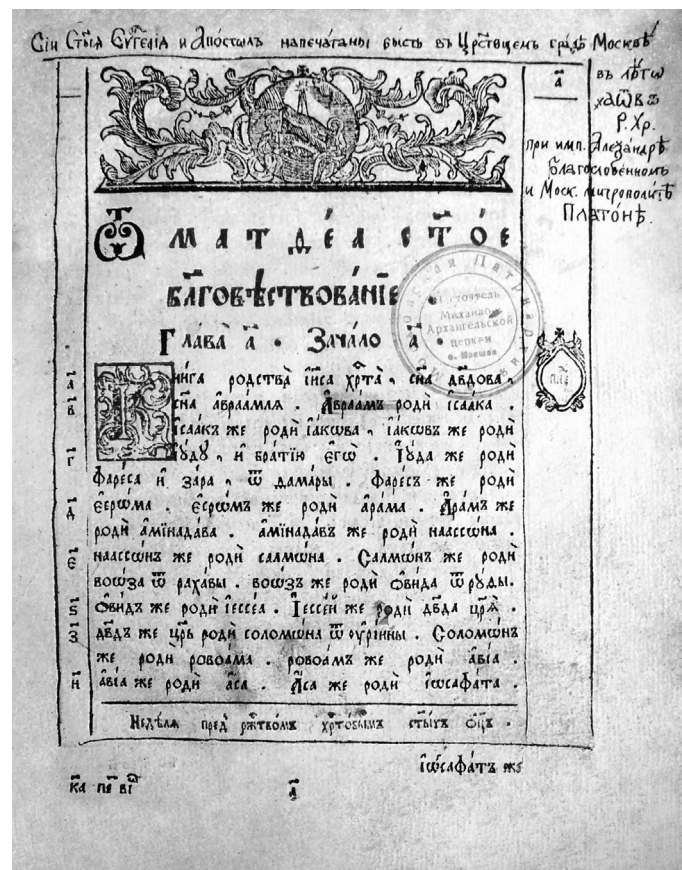 Сїи Ст҃ыѧ Еѵⷢ҇лїѧ и Апⷭ҇толъ напечатаны бысть въ Црⷭ҇твꙋщемъ градѣ Москвѣ
въ лѣто
҂аѿв҃
Р. Хр.
при имп. Алеѯандрѣ
Благословенномъ
и Моск. митрополитѣ
Платонѣ.
а҃
Ѿ матѳеа ст҃о́е
бл҃говѣствова́нїе
Глава̀ а҃ . Зача́ло а҃ .
Кни́га родства̀ і҆и҃са хрⷭ҇та̀, сн҃а дв҃дова,
а҃
сн҃а а҆враа́млѧ . А҆враа́мъ родѝ і҆саа́ка .
в҃
І҆саа́къ же родѝ і҆а́кѡва, і҆а́кѡвъ же родѝ
і҆ꙋ́дꙋ, и҆ бра́тїю є҆гѡ̀ . І҆ꙋ́да же родѝ
г҃
фаре́са и҆ за́ра, ѿ ѳама́ры . фаре́съ же родѝ
є҆срѡ́ма . є҆срѡ́мъ же родѝ а҆ра́ма . А҆ра́мъ же
д҃
родѝ а҆мїнада́ва . а҆мїнада́въ же родѝ наассѡ́на .
наассѡ́нъ же родѝ салмѡ́на . Салмѡ́нъ же родѝ
є҃
воѡ́за ѿ раха́вы . воѡ́зъ же родѝ ѡ҆ви́да ѿ рꙋ́ѳы.
ѡ҆ви́дъ же родѝ і҆ессе́а . І҆ессе́й же родѝ дв҃да цр҃ѧ̀ .
ѕ҃
дв҃дъ же цр҃ь родѝ соломѡ́на ѿ ᲂу҆рі́ины . Соломѡ́нъ
з҃
же родѝ ровоа́ма . ровоа́мъ же родѝ а҆вїа .
а҆вїа же родѝ а҆́са . А҆́са же родѝ і҆ѡсафа́та .
и҃
Недѣ́лѧ пред̾ ржⷭ҇тво́мъ хрⷭ҇то́вымъ ст҃ы́хъ ѻ҆ц҃ъ .
і҆ѡсафа́тъ же
а҃
Московская Патриархия
Настоятель
Михаило
Архангельской
церкви